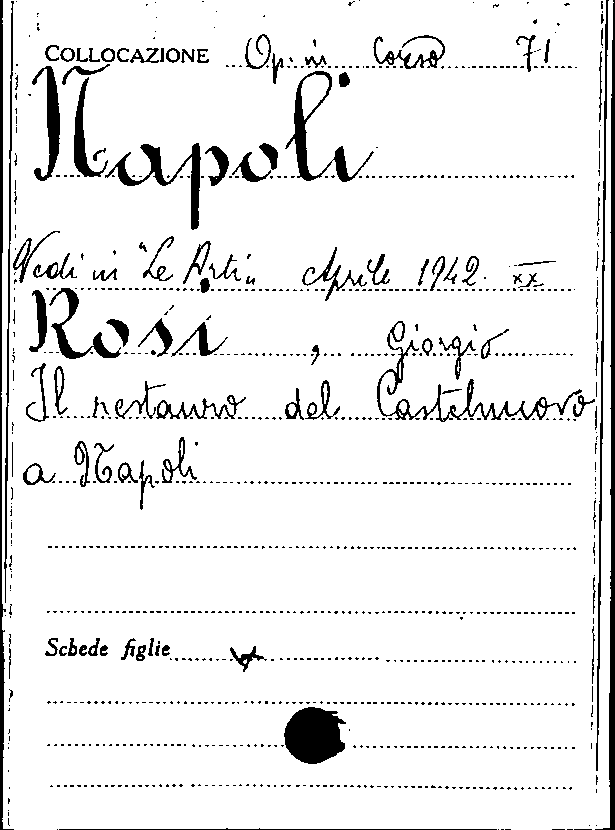 COLLOCAZIONE Op. in Corso 71
Napoli
Vedi in "Le Arti" Aprile 1942 XX
Rosi, Giorgio
Il restauro del Castelnuovo
a Napoli
Schede figlie